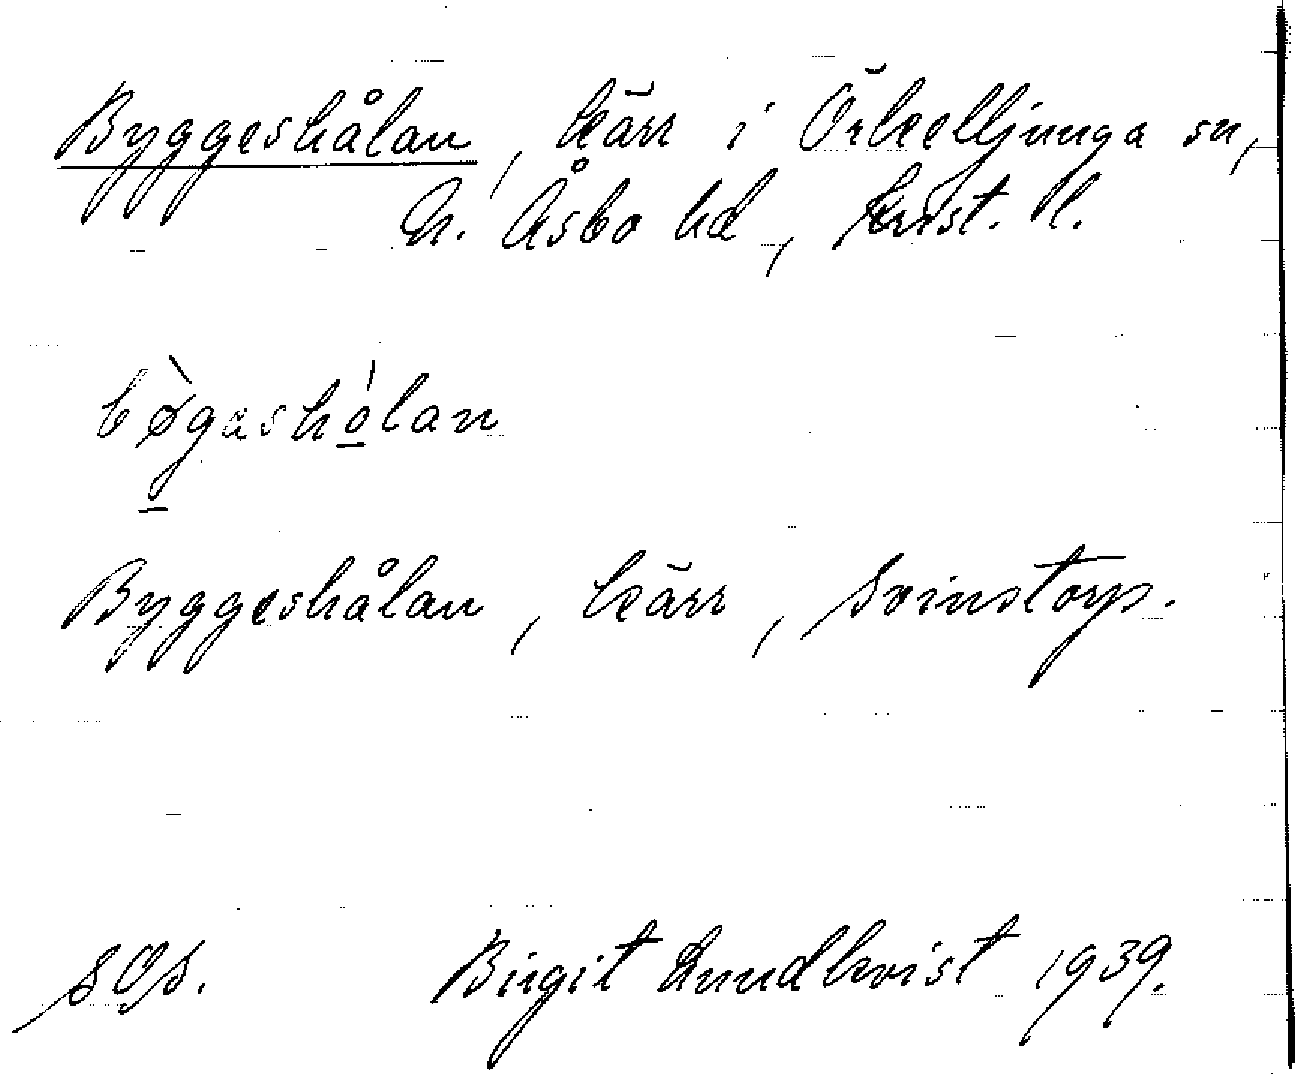 Byggeshålan, kärr i Örkelljunga sn,
N. Åsbo hd, Krist. l.
bø̀gashó̱lan
Byggeshålan, kärr, Svinstorp.
SOS. Birgit Lundkvist 1939.